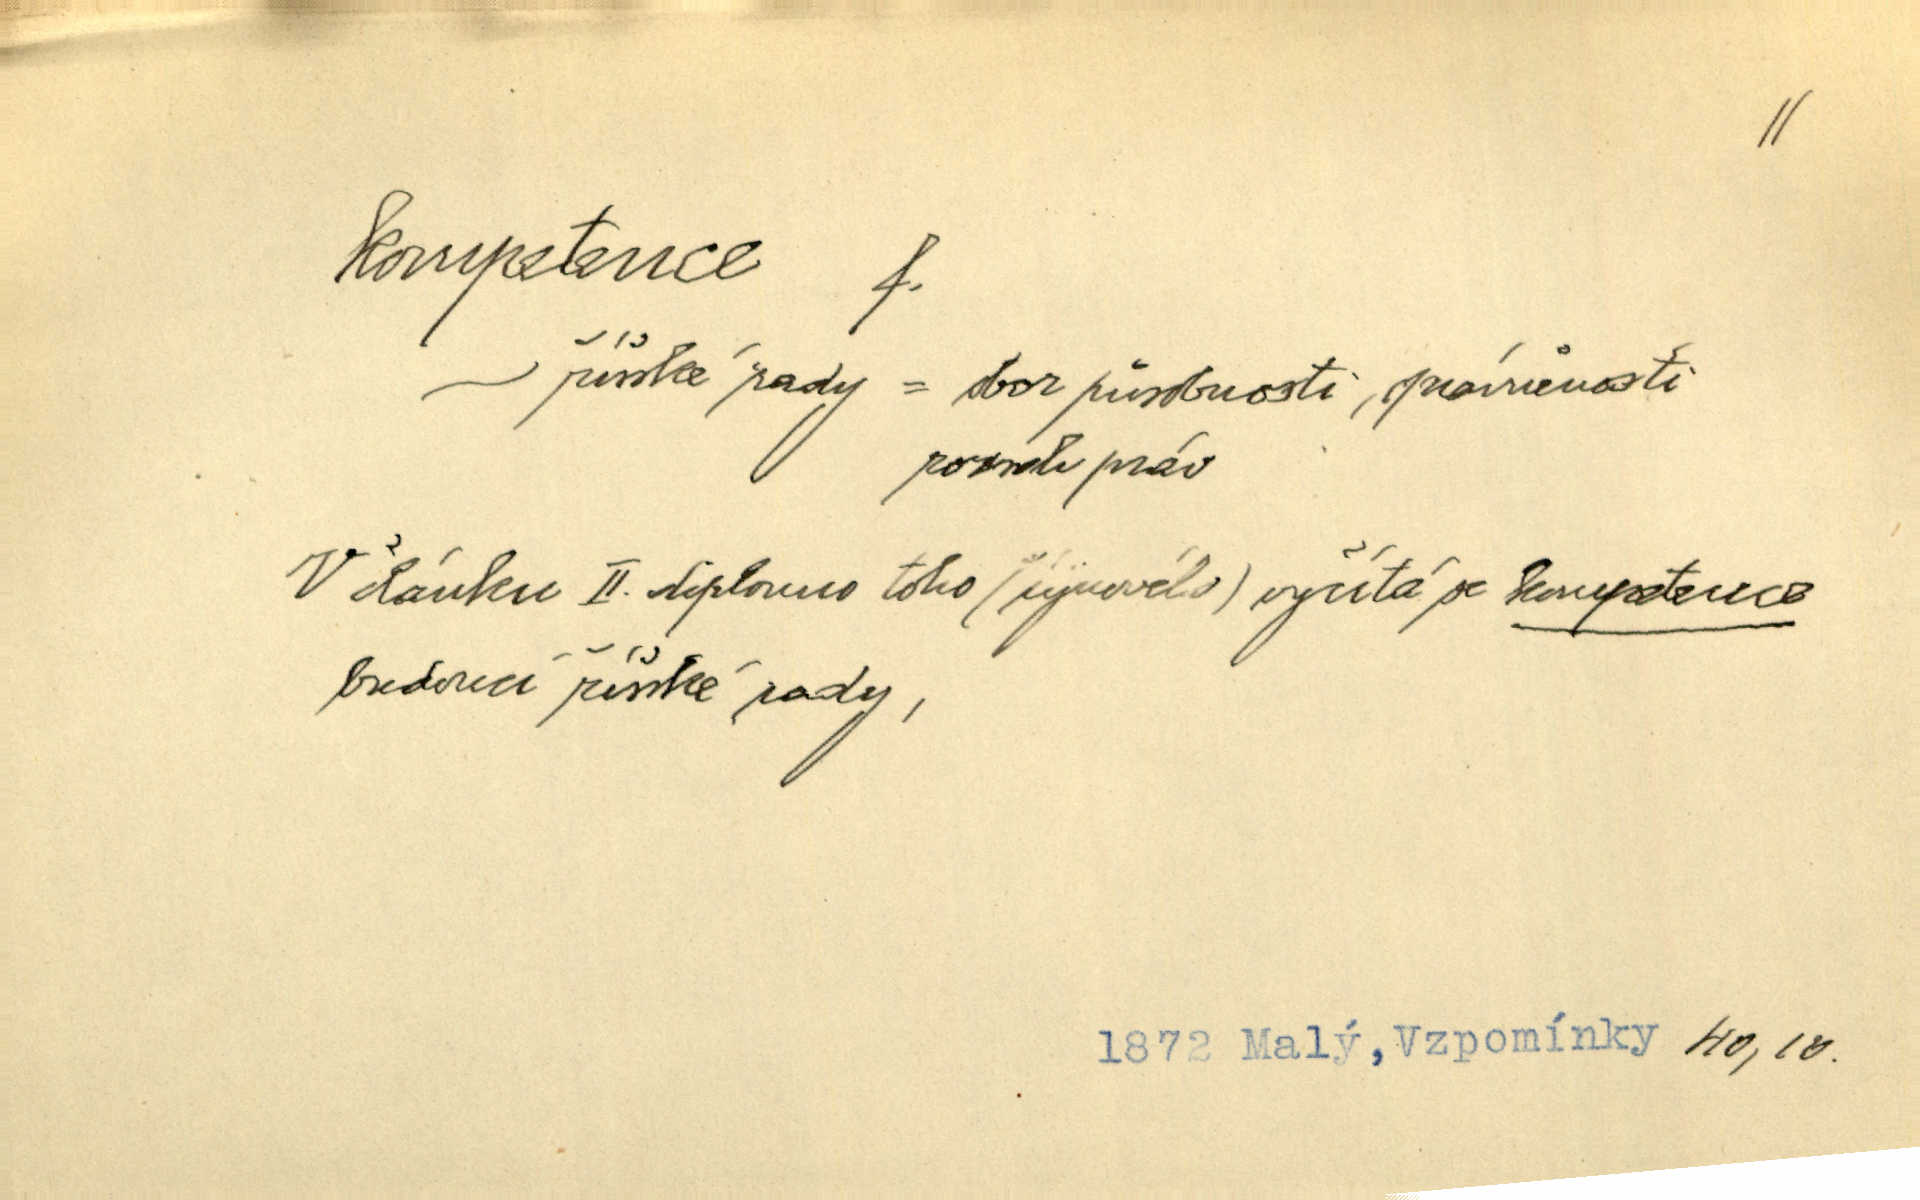 11
kompetence f.
~ říšské rady = obor působnosti, oprávněnosti
rozsah práv
V článku II. diplomu toho (říjnového) vyčítá se kompetence
budoucí říšské rady,
1872 Malý, Vzpomínky 40, 10.